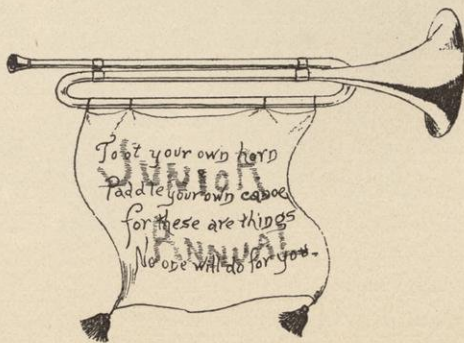 Toot your own horn
JUNIOR
Paddle your own canoe
for these are things
ANNUAL
No one will do for you.